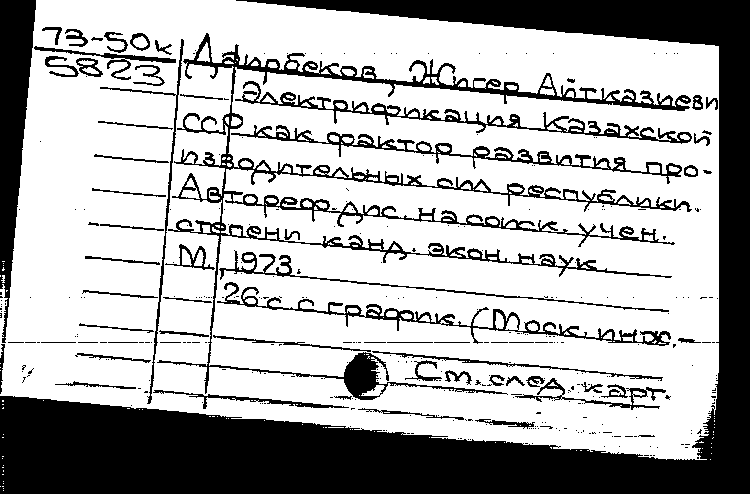 73-50к
5823
Даирбеков, Жигер Айтказиеви
Электрификация Казахской
ССР как фактор развития про-
изводительных сил республики.
Автореф. дис. на соиск. учен.
степени канд. экон. наук.
М., 1973.
26 с. с график. (Моск. инж.-
См. след. карт.